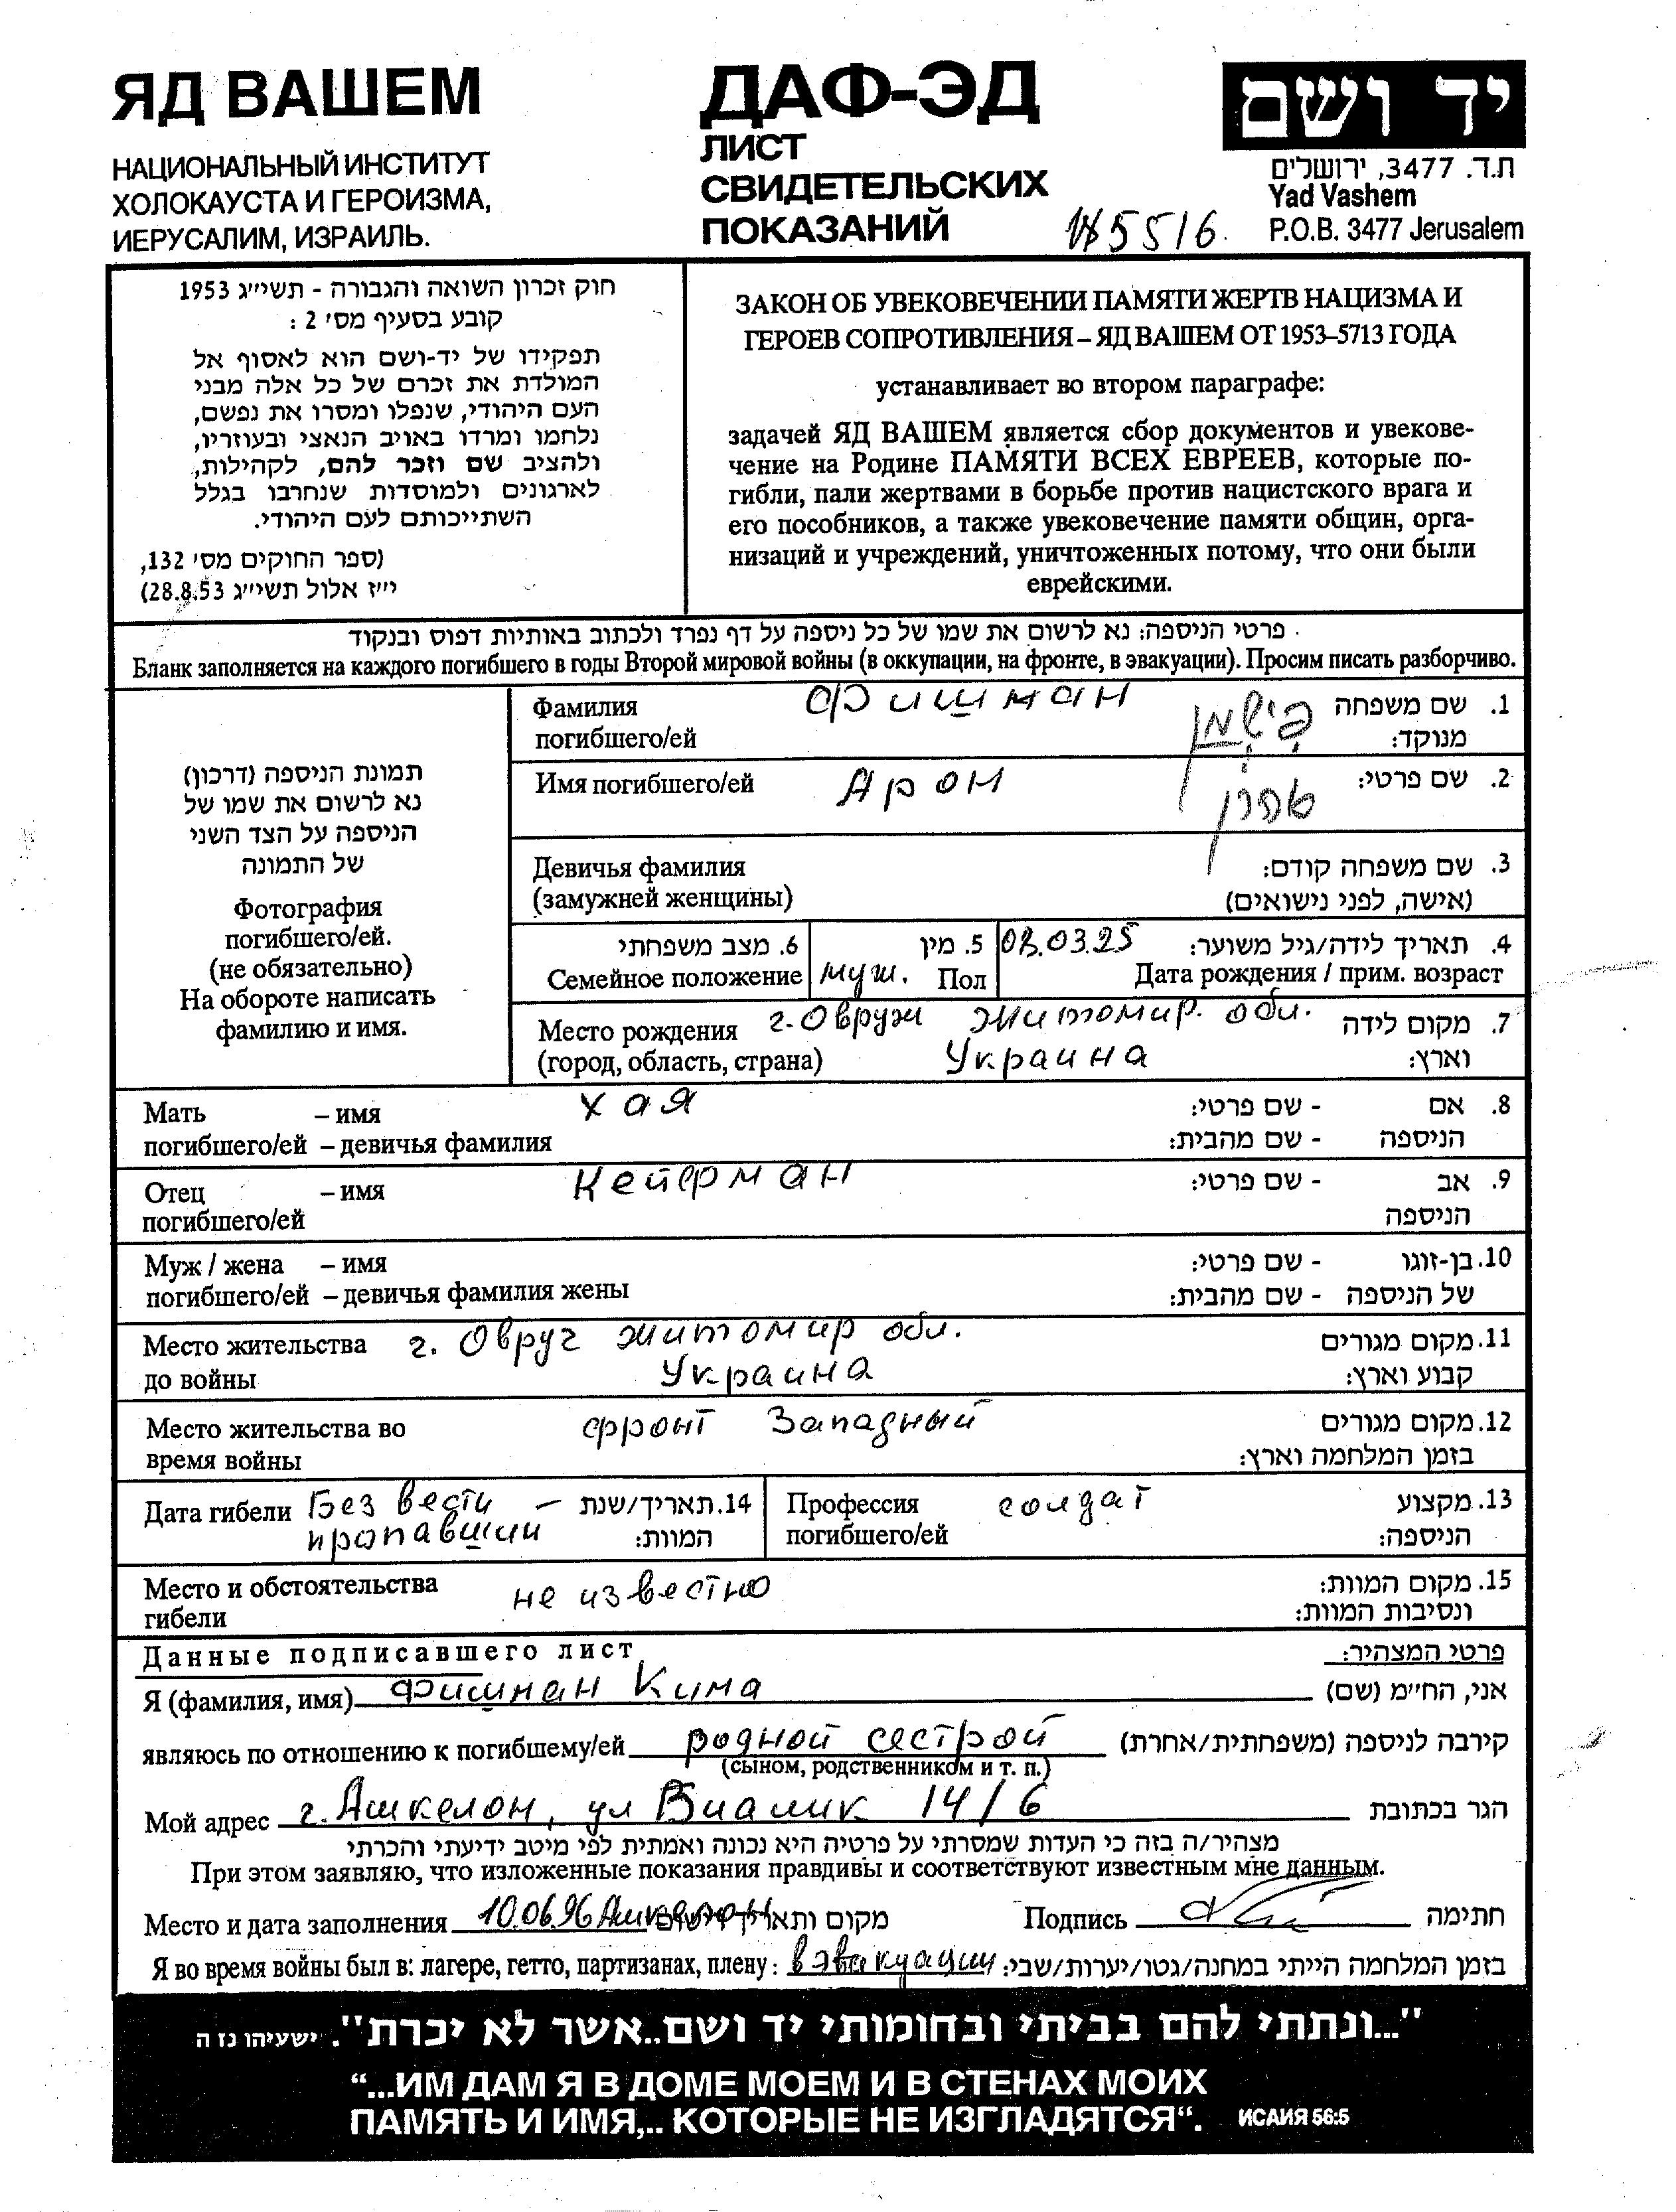 ЯД ВАШЕМ
НАЦИОНАЛЬНЫЙ ИНСТИТУТ
ХОЛОКАУСТА И ГЕРОИЗМА,
ИЕРУСАЛИМ, ИЗРАИЛЬ.
ДАФ-ЭД
ЛИСТ
СВИДЕТЕЛЬСКИХ
ПОКАЗАНИЙ
5516
יד ושם
ת.ד. 3477, ירושלים
Yad Vashem
P.O.B. 3477 Jerusalem
חוק זכרון השואה והגבורה - תשי״ג 1953
קובע בסעיף מס׳ 2 :
תפקידו של יד-ושם הוא לאסוף אל
המולדת את זכרם של כל אלה מבני
העם היהודי, שנפלו ומסרו את נפשם,
נלחמו ומרדו באויב הנאצי ובעוזריו,
ולהציב שם וזכר להם, לקהילות,
לארגונים ולמוסדות שנחרבו בגלל
השתייכותם לעם היהודי.
(ספר החוקים מס׳ 132,
י״ז אלול תשי״ג 28.8.53)
ЗАКОН ОБ УВЕКОВЕЧЕНИИ ПАМЯТИ ЖЕРТВ НАЦИЗМА И
ГЕРОЕВ СОПРОТИВЛЕНИЯ – ЯД ВАШЕМ ОТ 1953–5713 ГОДА
устанавливает во втором параграфе:
задачей ЯД ВАШЕМ является сбор документов и увекове-
чение на Родине ПАМЯТИ ВСЕХ ЕВРЕЕВ, которые по-
гибли, пали жертвами в борьбе против нацистского врага и
его пособников, а также увековечение памяти общин, орга-
низаций и учреждений, уничтоженных потому, что они были
еврейскими.
פרטי הניספה: נא לרשום את שמו של כל ניספה על דף נפרד ולכתוב באותיות דפוס ובנקוד
Бланк заполняется на каждого погибшего в годы Второй мировой войны (в оккупации, на фронте, в эвакуации). Просим писать разборчиво.
תמונת הניספה (דרכון)
נא לרשום את שמו של
הניספה על הצד השני
של התמונה
Фотография
погибшего/ей.
(не обязательно)
На обороте написать
фамилию и имя.
Фамилия Фишман פישמן 1. שם משפחה
погибшего/ей מנוקד:
Имя погибшего/ей Арон אהרן 2. שם פרטי:
Девичья фамилия 3. שם משפחה קודם:
(замужней женщины) (אישה, לפני נישואים)
6. מצב משפחתי 5. מין 03.25 4. תאריך לידה/גיל משוער:
Семейное положение муж. Пол Дата рождения / прим. возраст
Место рождения г. Овруч Житомир. обл. 7. מקום לידה
(город, область, страна) Украина וארץ:
Мать – имя Хая - שם פרטי: 8. אם
погибшего/ей – девичья фамилия - שם מהבית: הניספה
Отец – имя Кейерман - שם פרטי: 9. אב
погибшего/ей הניספה
Муж / жена – имя - שם פרטי: 10. בן-זוגו
погибшего/ей – девичья фамилия жены - שם מהבית: של הניספה
Место жительства г. Овруч Житомир обл. 11. מקום מגורים
до войны Украина קבוע וארץ:
Место жительства во фронт Западный 12. מקום מגורים
время войны בזמן המלחמה וארץ:
Дата гибели Без вести – 14. תאריך/שנת
пропавший המוות:
Профессия солдат 13. מקצוע
погибшего/ей הניספה:
Место и обстоятельства не известно 15. מקום המוות:
гибели ונסיבות המוות:
Данные подписавшего лист פרטי המצהיר:
Я (фамилия, имя) Фишман Кима אני, החי״מ (שם)
являюсь по отношению к погибшему/ей родной сестрой קירבה לניספה (משפחתית/אחרת)
(сыном, родственником и т. п.)
Мой адрес г. Ашкелон, ул Биалик 14/6 הגר בכתובת
מצהיר/ה בזה כי העדות שמסרתי על פרטיה היא נכונה ואמתית לפי מיטב ידיעתי והכרתי
При этом заявляю, что изложенные показания правдивы и соответствуют известным мне данным.
Место и дата заполнения 10.06.96 Ашкелон מקום ותאריך Подпись חתימה
Я во время войны был в: лагере, гетто, партизанах, плену: в эвакуации בזמן המלחמה הייתי במחנה/גטו/יערות/שבי:
"...ונתתי להם בביתי ובחומותי יד ושם..אשר לא יכרת". ישעיהו נז ה
“...ИМ ДАМ Я В ДОМЕ МОЕМ И В СТЕНАХ МОИХ
ПАМЯТЬ И ИМЯ,.. КОТОРЫЕ НЕ ИЗГЛАДЯТСЯ“. ИСАИЯ 56:5